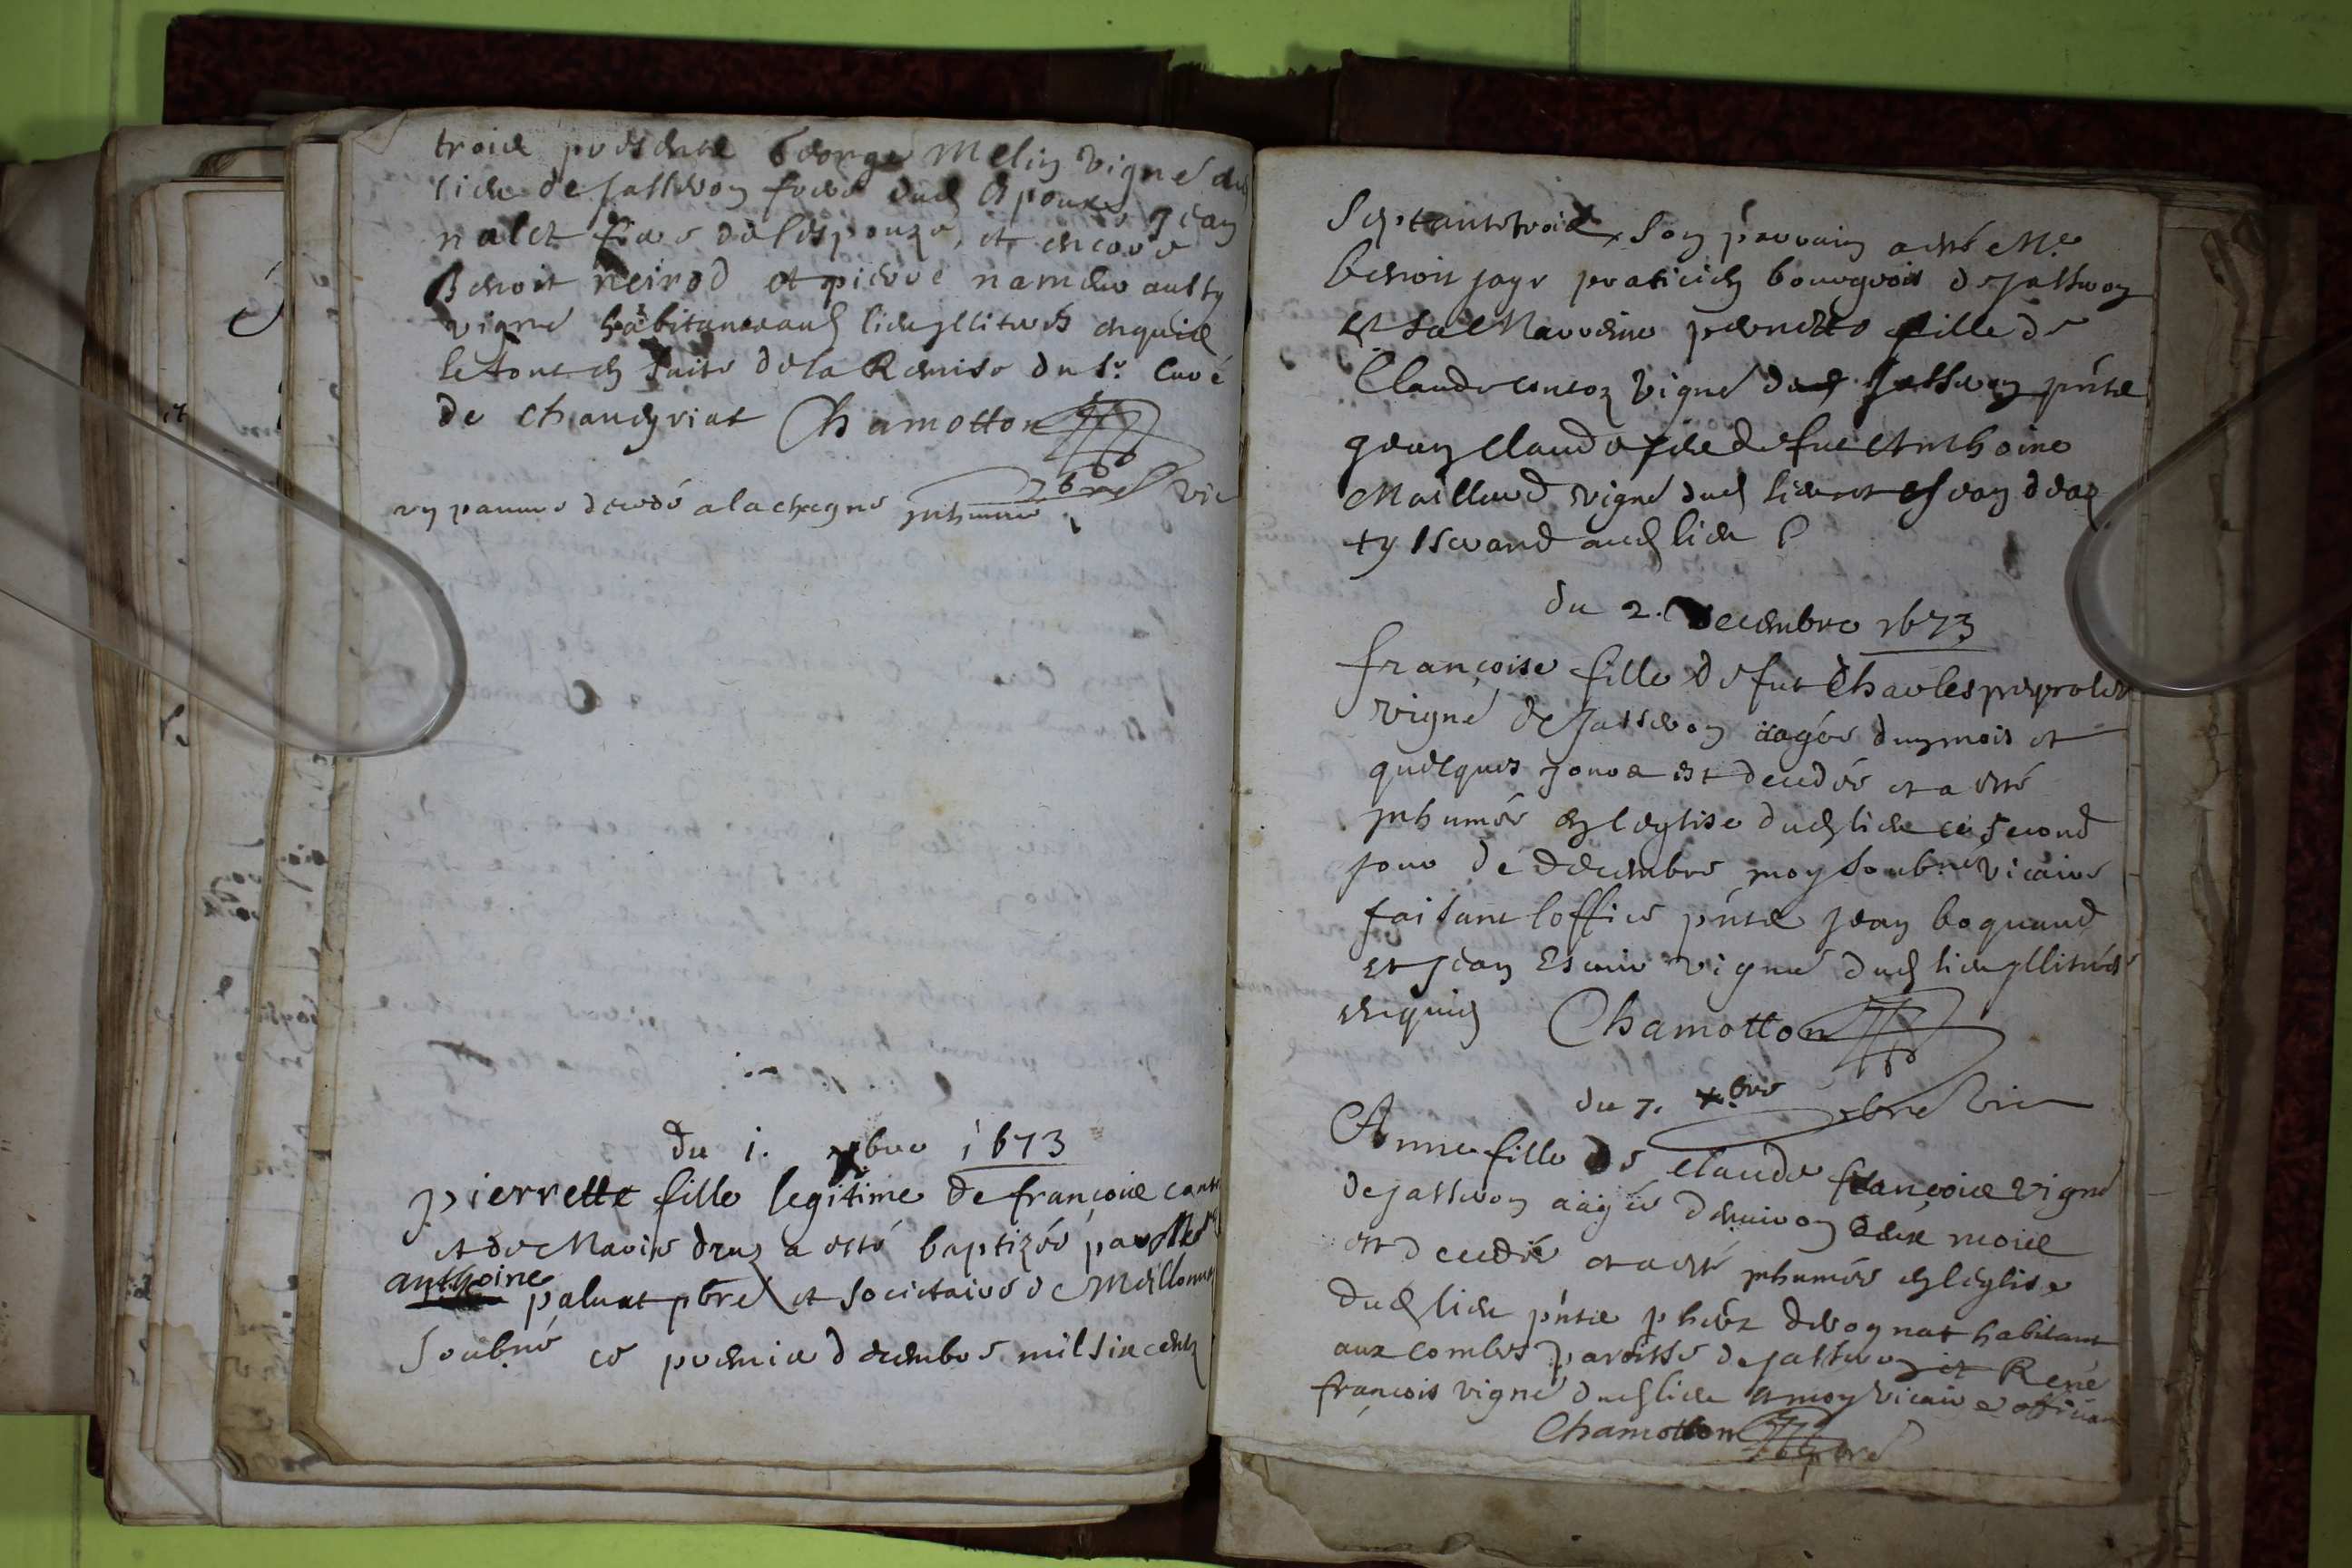 troice presence George Melin vigne dud
lieu de Jasseron frere dud espoux, Jean
nalet frere de lespouze, et encore
Benoit neirod et pierre namer aussy
vigne habitans aud lieu yllitérés enquis
le tout en suite de la Remise du Sr. Curé
de chaneyriat Chamotton
pbre vic
un pauvre decedé a la chagne inhumé
Du 1. xbre 1673
pierrette fille legitime de françois
et de Marie druz a esté baptizée par
anthoine paluat pbre et societaire de Meillonnas
Soubné ce premier decembre mil six centz
Septante trois, son parrain a esté Me
benoit jayr praticien bourgeois de Jasseron
et sa Marreine pernette fille de
Claude contoz vigne dud Jasseron pnts
Jean Claude fils de fut Anthoine
Maillard vigne dud lieu et estienne
tysserand aud lieu
du 2. Decembre 1673
françoise fille de fut Charles
vigne de Jasseron aagée dun mois et
quelques jours est decedée et a esté
inhumée en leglise dud lieu ce second
jour de decembre moy soubné vicaire
faisant loffice pnts Jean boquand
et Jean vigne dud lieu yllitérés
enquis Chamotton
du 7. xbre pbre vic
Anne fille de Claude françois vigne
de Jasseron aagée denviron deux mois
est decedée et a esté inhumée en leglise
dud lieu pnts derognat habitant
aux combes parroisse de Jasseron et René
françois vigne dud lieu a moy vicaire officiant
Chamotton
pbre